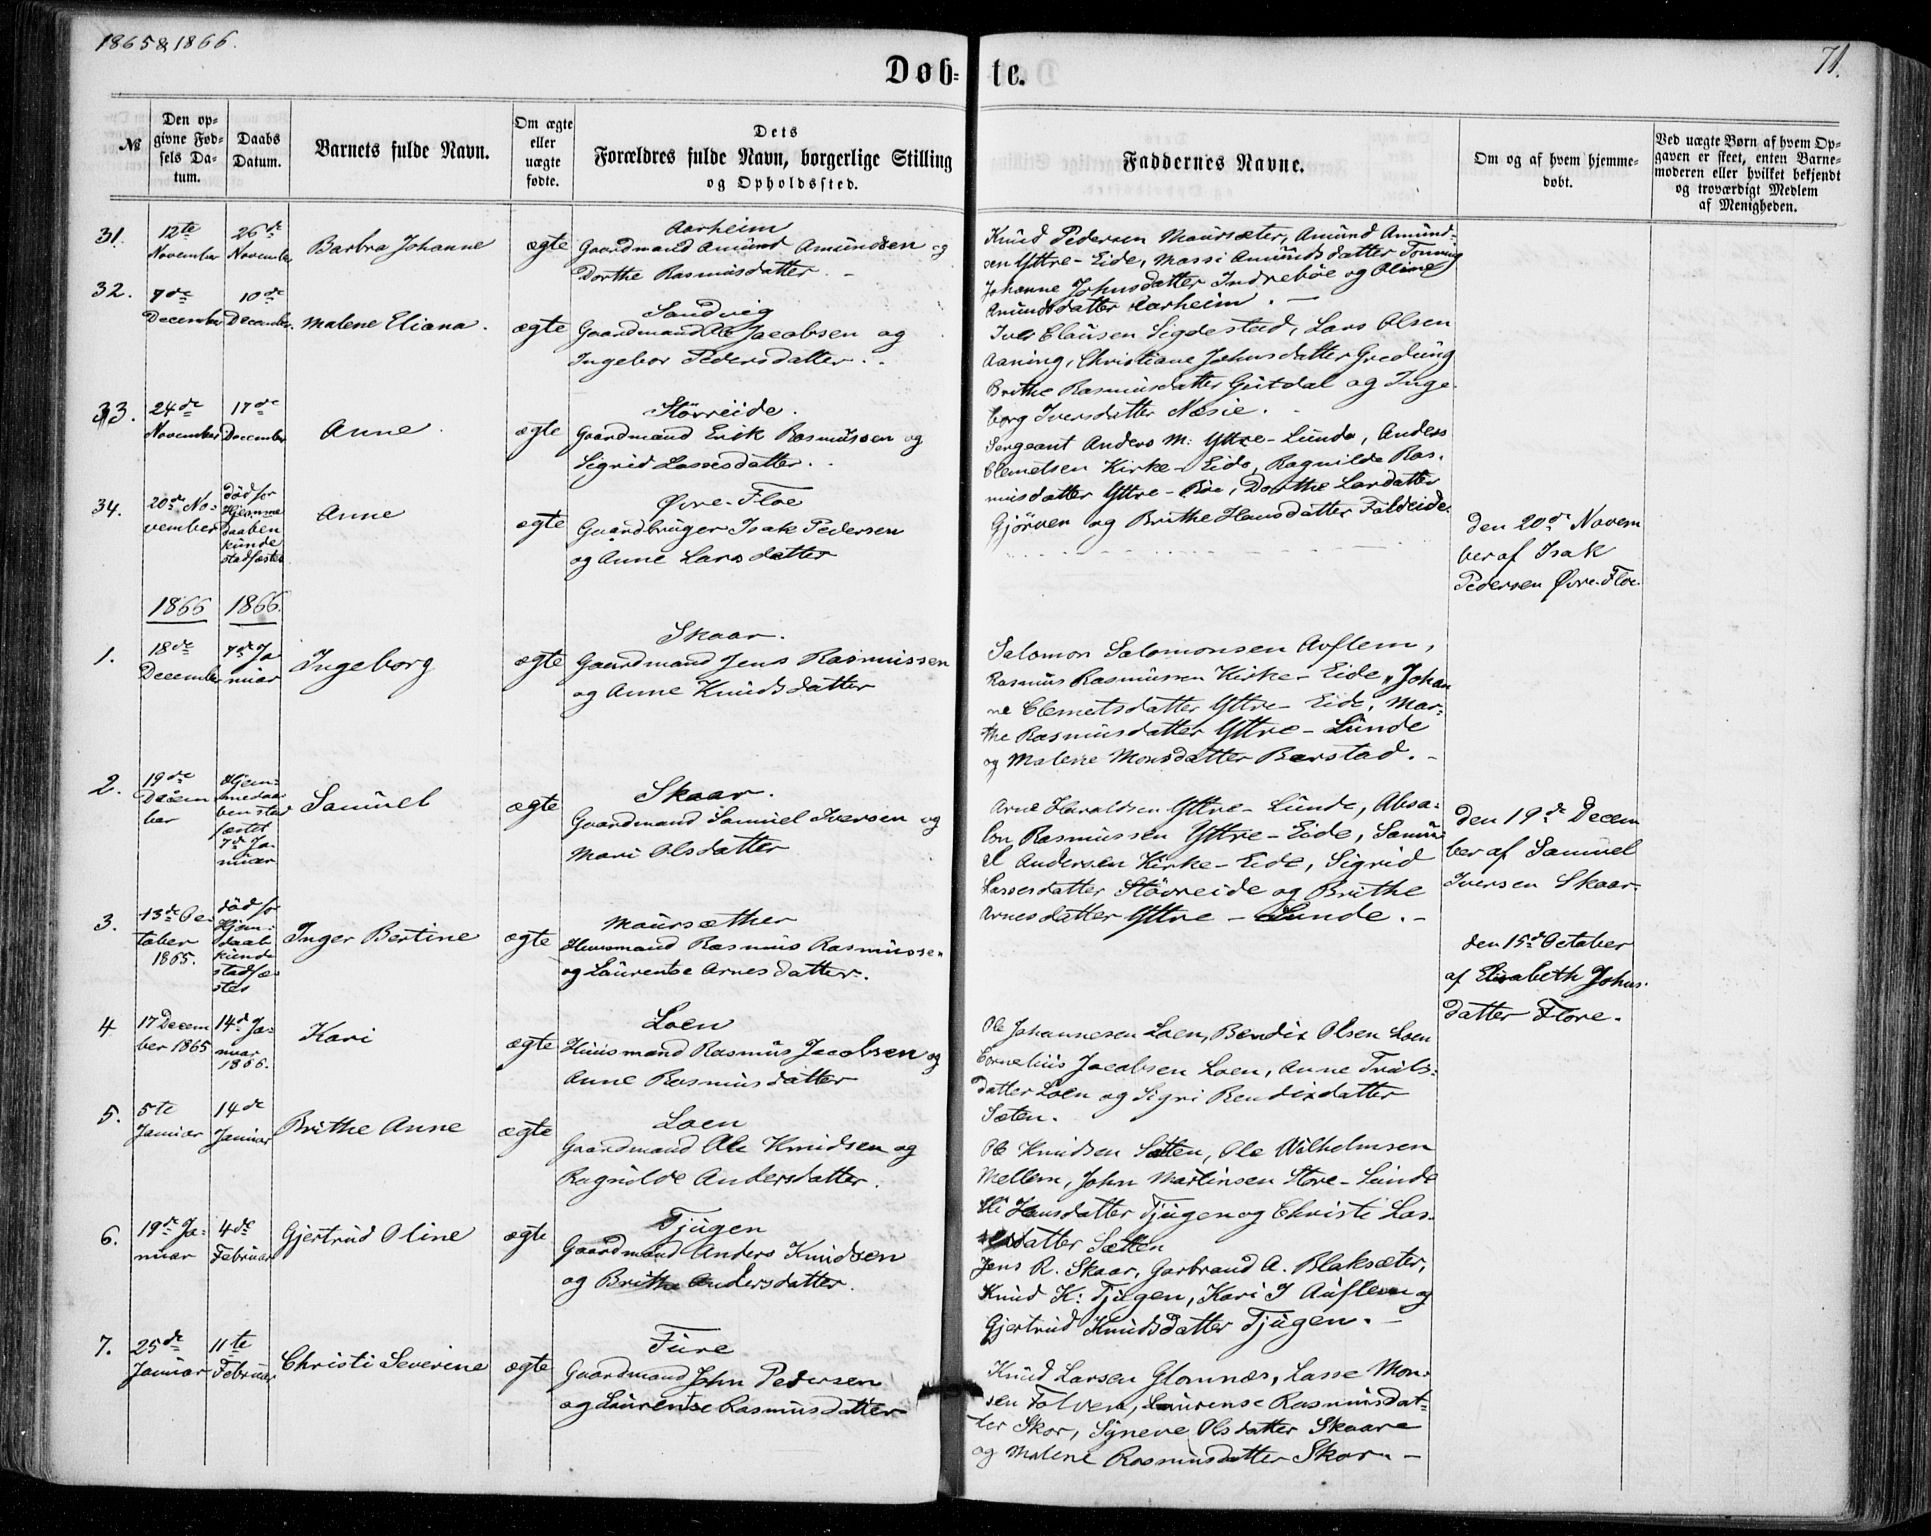 1865 & 1866.
71.
Døb-te.
№
Den op-
givne Fød-
sels Da-
tum.
Daabs
Datum.
Barnets fulde Navn.
Om ægte
eller
uægte
fødte.
Dets
Forældres fulde Navn, borgerlige Stilling
og Opholdssted.
Faddernes Navne.
Om og af hvem hjemme-
døbt.
Ved uægte Børn af hvem Op-
gaven er skeet, enten Barne-
moderen eller hvilket bekjendt
og troværdigt Medlem
af Menigheden.
31.
12te
November
26de
November
Barbra Johanne
ægte
Aarheim
Gaardmand Amund Amundsen og
Dorthe Rasmusdatter. -
Knud Pedersen Maursæter, Amund Amund-
sen Yttre-Eide, Massi Amundsdatter Tonning
Johanne Johnsdatter Indreböe og Oline
Amundsdatter Aarheim. -
32.
7de
December
10de
December
Malene Eliana.
ægte
Sandvig
Gaardmand Ole Jacobsen og
Ingebor Pedersdatter.
Iver Clausen Sigdestad, Lars Olsen
Aaning, Christiane Johnsdatter Gredung
Brithe Rasmusdatter Guitdal og Inge-
borg Iversdatter Næsie.
33.
24de
November
17de
December
Anne
ægte
Störreide.
Gaardmand Erik Rasmussen og
Sigrid Lassesdatter.
Sergeant Anders M: Yttre-Lunde, Anders
Clemetsen Kirke-Eide, Ragnilde Ras-
musdatter Yttre-Böe, Dorthe Larsdatter
Gjörven og Brithe Hansdatter Faldeide.
34.
20de No-
vember
död for
Hjemme
daaben
kunde
stadfæstes
Anne
ægte
Øvre-Floe
Gaardbruger Isak Pedersen
og Anne Larsdatter
den 20de Novem
ber af Isak
Pedersen Øvre-Floe.
1866
1866.
1.
18de
December
7de Ja
nuar
Ingeborg
ægte
Skaar.
Gaardmand Jens Rasmussen
og Anne Knudsdatter
Salomon Salomonsen Avflem,
Rasmus Rasmussen Kirke-Eide, Johan
ne Clemetsdatter Yttre-Eide, Mar-
the Rasmusdatter Yttre-Lunde
og Malene Monsdatter Berstad. -
2.
19de
Decem
ber
Hjem-
medaa
ben stad
fæstet
7de Ja-
nuar
Samuel
ægte
Skaar.
Gaardmand Samuel Iversen og
Mari Olsdatter
Arne Haraldsen Yttre-Lunde, Absa-
lon Rasmussen Yttre-Eide, Samu-
el Andersen Kirke-Eide, Sigrid
Lassesdatter Störreide og Brithe
Arnesdatter Yttre-Lunde. -
den 19de Decem
ber af Samuel
Iversen Skaar.
3.
13de Oc-
tober
1865.
död for
Hjem-
daab
kunde
stadfæ-
stes
Inger Bertine
ægte
Maursæther
Huusmand Rasmus Rasmussen
og Laurentse Arnesdatter.
den 15de October
af Elisabeth Johns-
datter Flore.
4
17 Decem
ber 1865
14de Ja-
nuar
1866.
Kari
ægte
Loen
Huusmand Rasmus Jacobsen og
Anne Rasmusdatter
Ole Johannesen Loen, Bendix Olsen Loen
Cornelius Jacobsen Loen, Anne Truls-
datter Loen og Sigri Bendixdatter
Sæten.
5.
5te
Januar
14de
Januar
Brithe Anne
ægte
Loen
Gaardmand Ole Knudsen og
Ragnilde Andersdatter.
Ole Knudsen Sætten, Ole Wilhelmsen
Mellem, John Martinsen Store-Lunde
Eli Hansdatter Tjugen og Christi Las-
sesdatter Sætten
6.
19de Ja-
nuar
4de
Februar
Gjertrud Oline
ægte
Tjugen
Gaardmand Anders Knudsen
og Brithe Andersdatter.
Jens R. Skaar, Garbrand A. Blaksæter,
Knud K: Tjugen, Kari J Auflem og
Gjertrud Knudsdatter Tjugen. -
7.
25de
Januar
11te
Februar
Christi Severine
ægte
Fure
Gaardmand John Pedersen
og Laurentse Rasmusdatter
Knud Larsen Glomnæs, Lasse Mon-
sen Folven, Laurense Rasmusdat-
ter Skor, Syneve Olsdatter Skaare
og Malene Rasmusdatter Skor. -